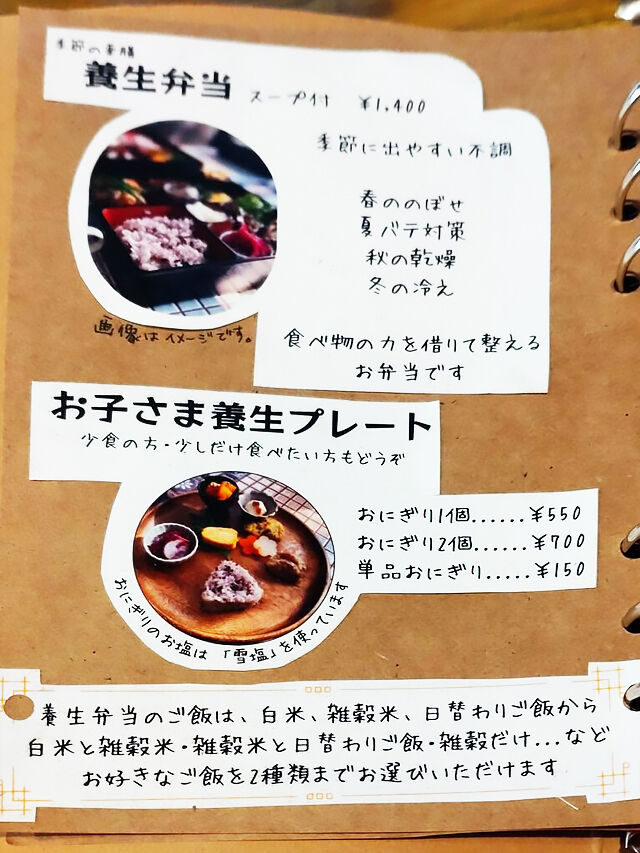 季節の薬膳
養生弁当 スープ付 ¥1,400
季節に出やすい不調
春ののぼせ
夏バテ対策
秋の乾燥
冬の冷え
画像はイメージです。
食べ物の力を借りて整える
お弁当です
お子さま養生プレート
少食の方・少しだけ食べたい方もどうぞ
おにぎり1個......¥550
おにぎり2個......¥700
単品おにぎり.....¥150
おにぎりのお塩は「雪塩」を使っています
養生弁当のご飯は、白米、雑穀米、日替わりご飯から
白米と雑穀米・雑穀米と日替わりご飯・雑穀だけ...など
お好きなご飯を2種類までお選びいただけます